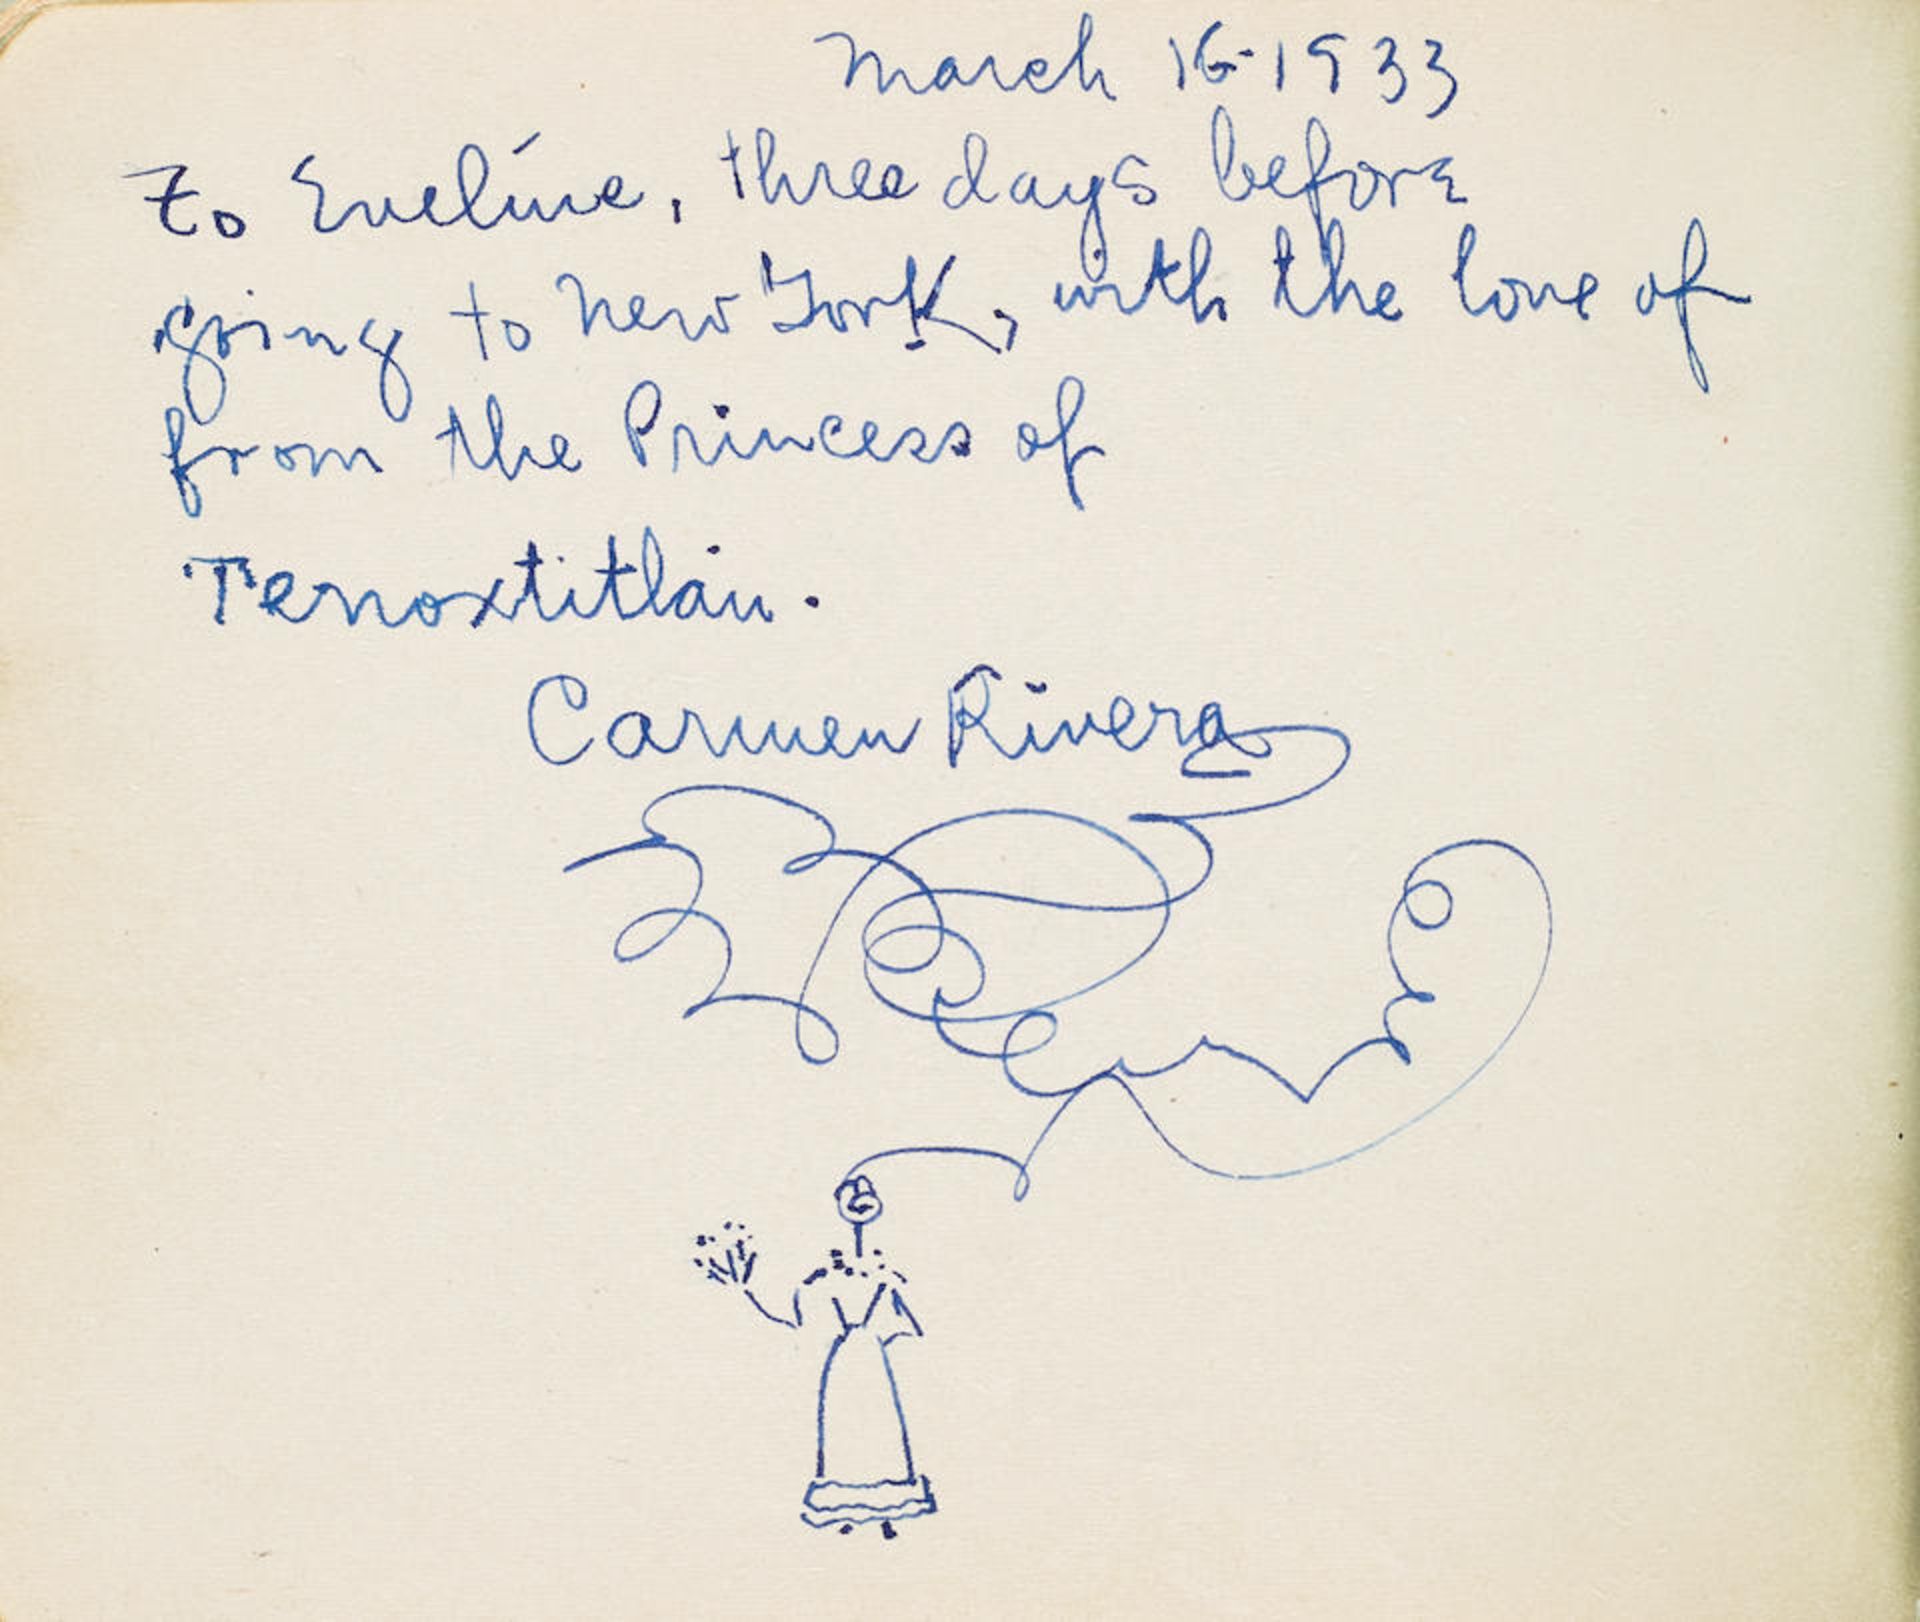 March 16-1933
To Eveline, three days before
going to New York, with the love of
from the Princess of
Tenoxtitlán.
Carmen Rivera